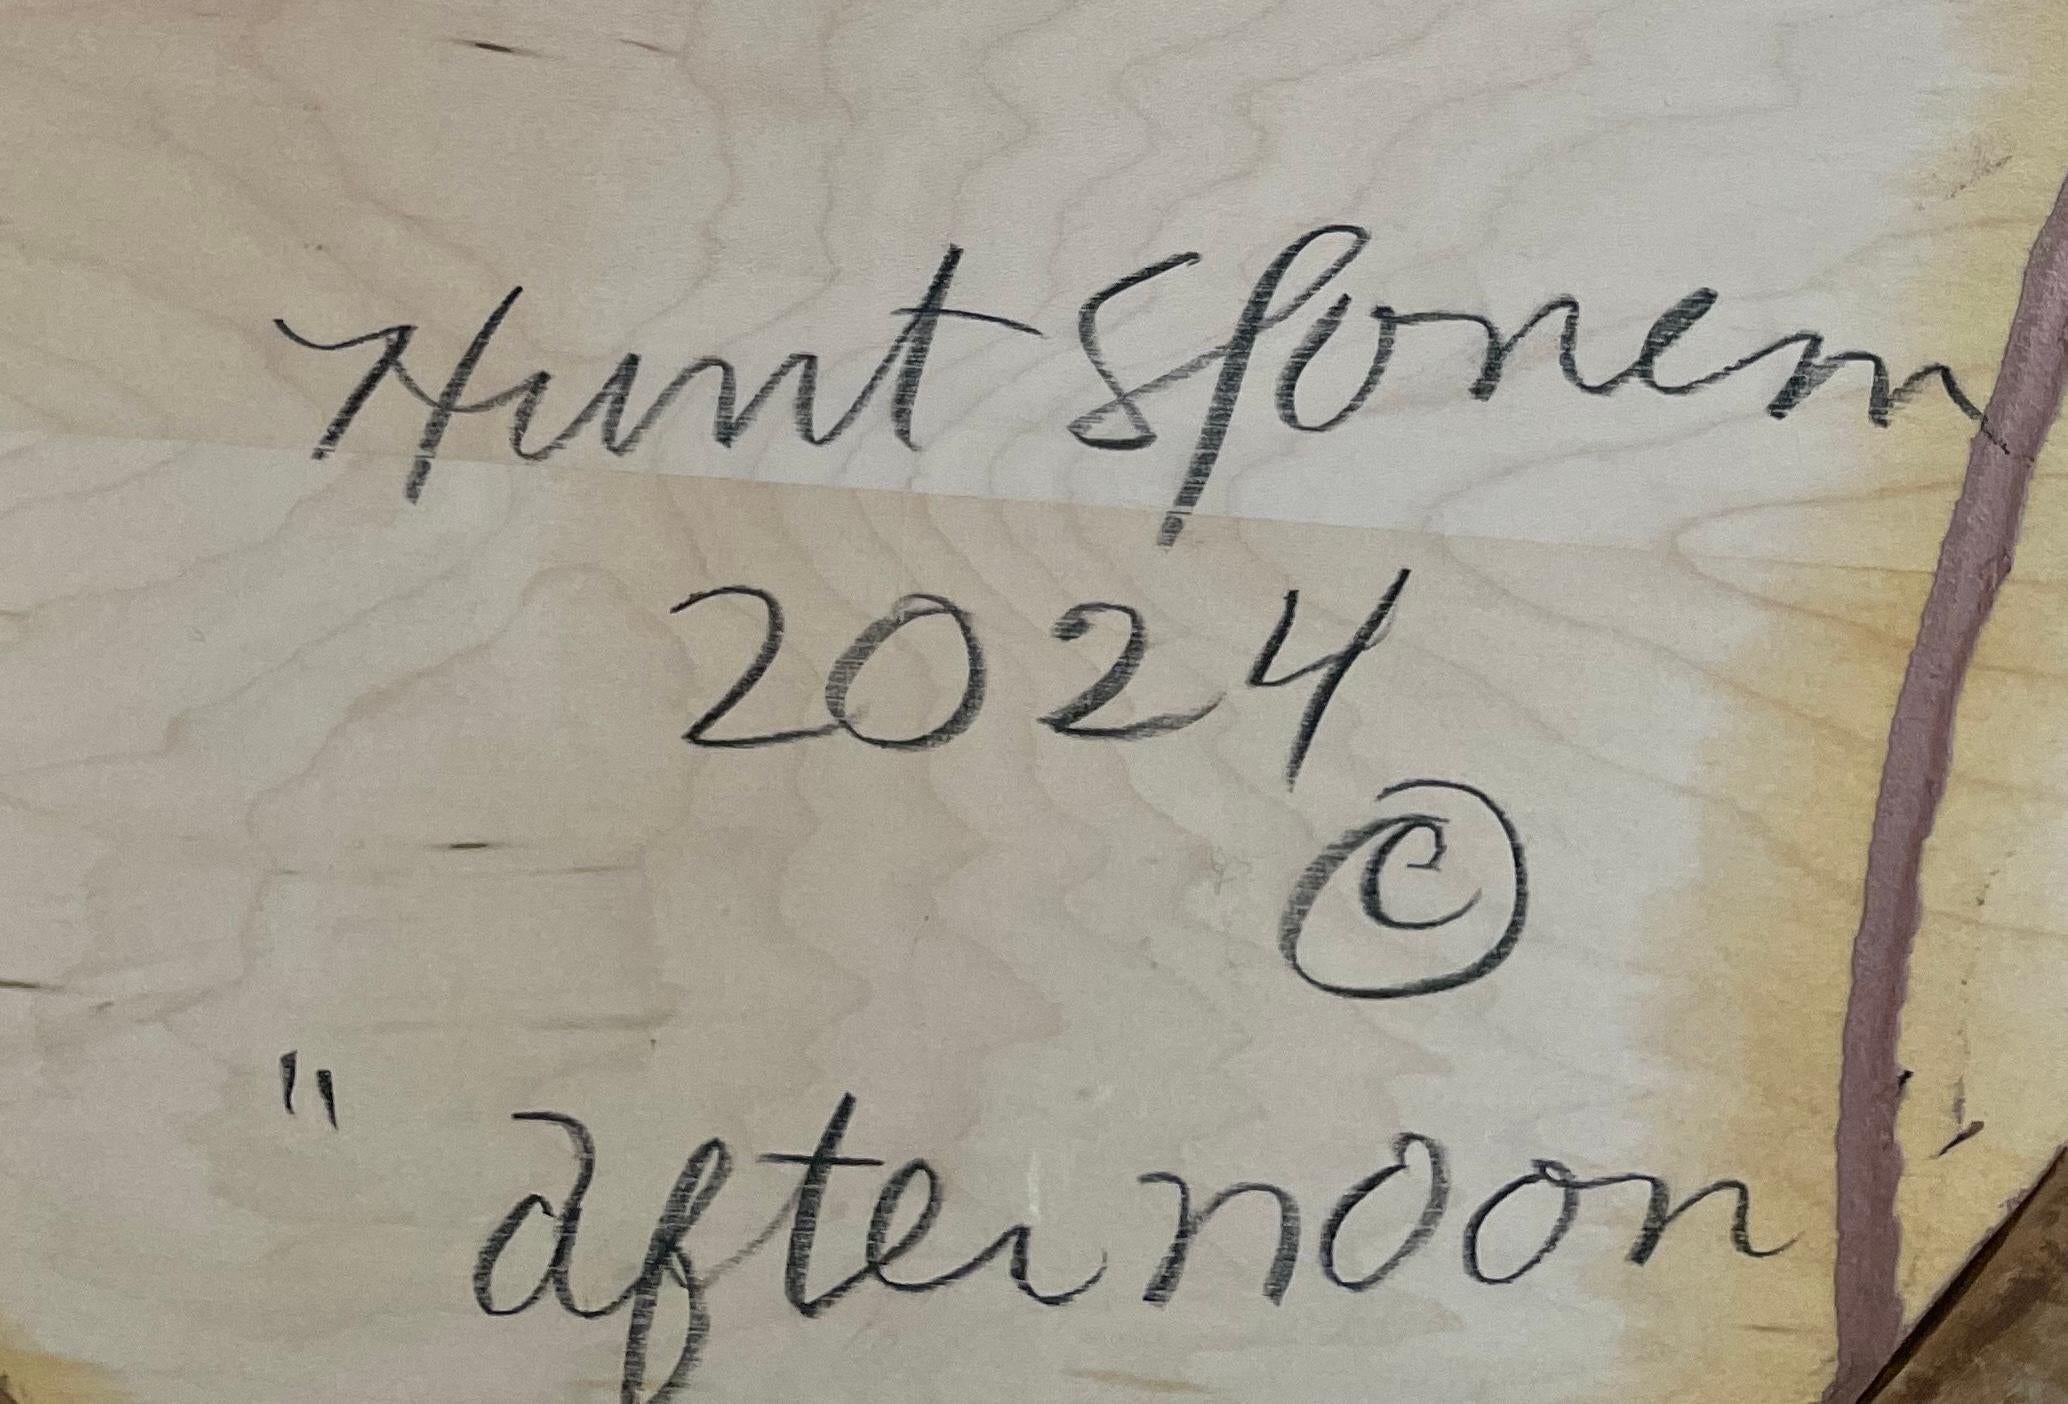 Hunt Slonem
2024
©
"afternoon"